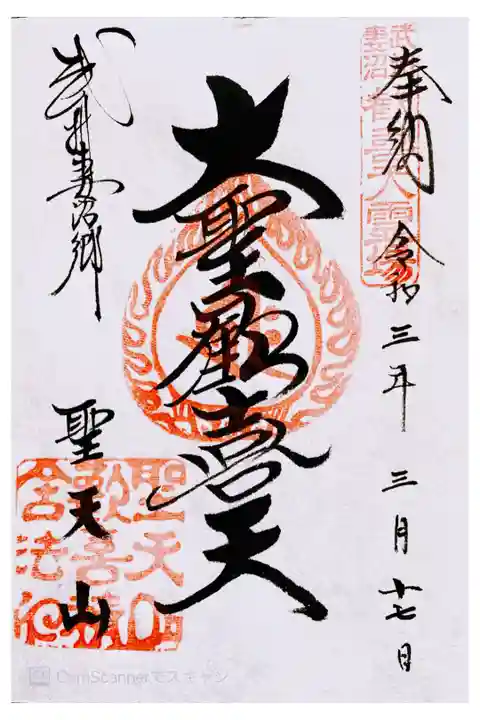 奉納 令和三年三月十七日
武州妻沼
歓喜天霊場
大聖歓喜天
武州妻沼郷
聖天山
聖天山
歓喜院
CamScannerでスキャン